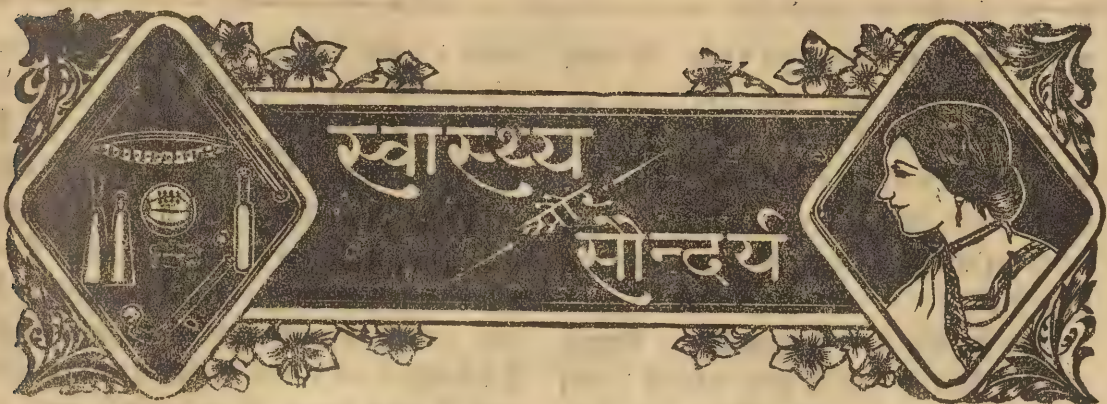 स्वास्थ्य
और
सौन्दर्य